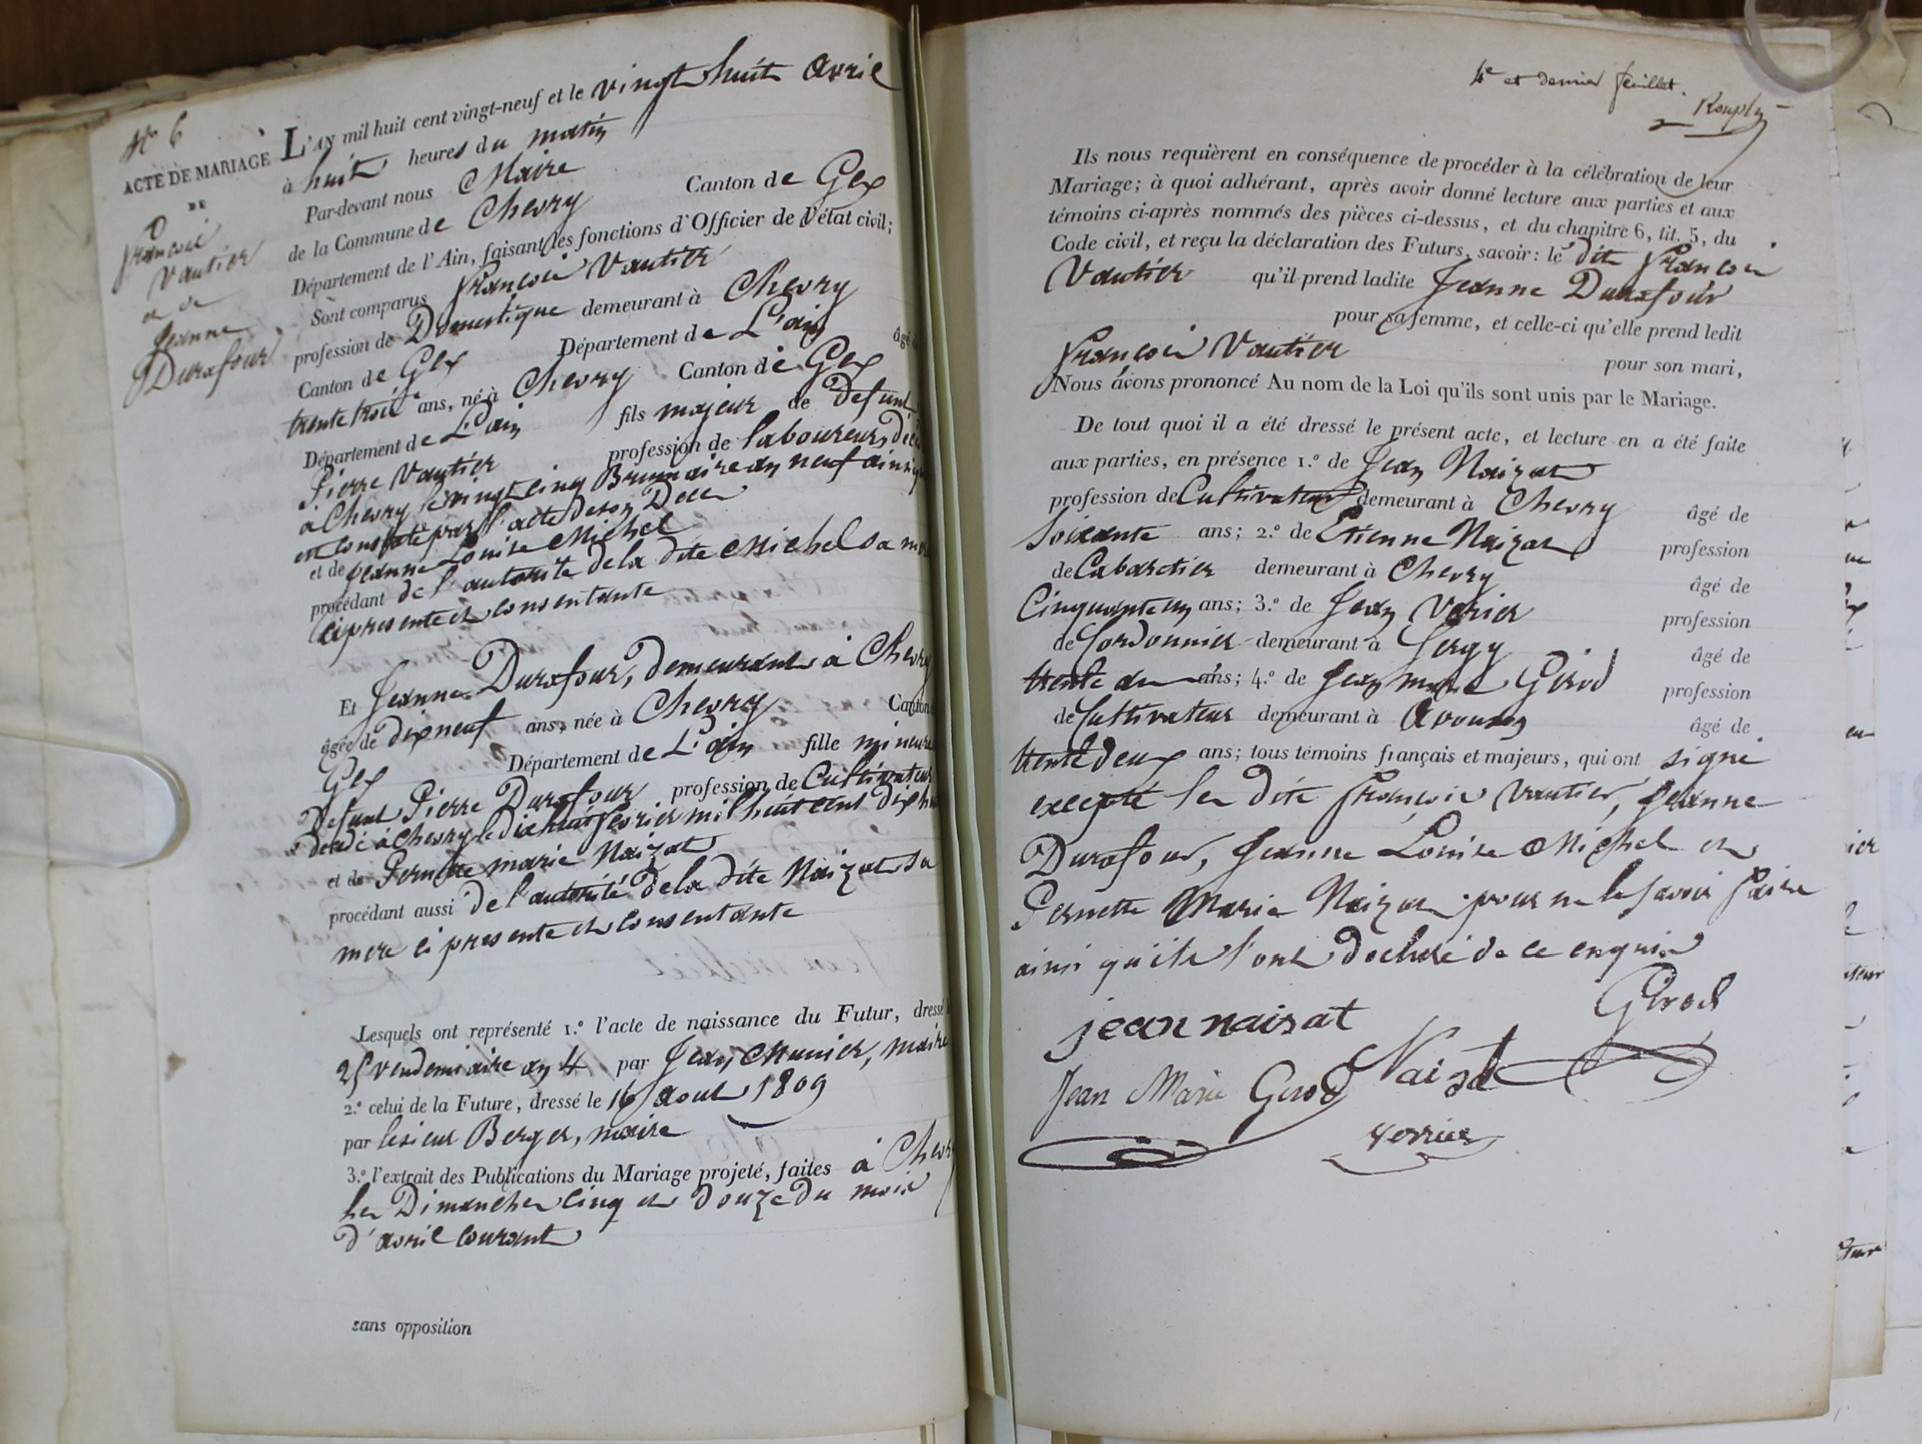 N° 6
ACTE DE MARIAGE
DE
François
Vautier
et
Jeanne
Durafour
L'AN mil huit cent vingt-neuf et le vingt huit avril
à huit heures du matin
Par-devant nous Maire
de la Commune de Chevry Canton de Gex
Département de l'Ain, faisant les fonctions d'Officier de l'état civil;
Sont comparus François Vautier
profession de Domestique demeurant à Chevry
Canton de Gex Département de L'ain âgé
trente trois ans, né à Chevry Canton de Gex
Département de L'ain fils majeur de Defunt
Pierre Vautier profession de laboureur, décé
à Chevry le vingt cinq Brumaire an neuf ainsi qu
est constaté par l'acte de son Deces
et de Jeanne Louise Michel
procédant de l'autorité de la dite Michel sa mere
ci presente et consentante
Et Jeanne Durafour, demeurant à Chevry
âgée de dix neuf ans, née à Chevry Canton
Gex Département de L'ain fille mineure
Defunt Pierre Durafour profession de Cultivateur
décédé à Chevry le dix huit fevrier mil huit cent dix huit
et de Pernette marie Naizat
procédant aussi de l'autorité de la dite Naizat sa
mere ci presente et consentante
Lesquels ont représenté 1.° l'acte de naissance du Futur, dressé
25 vendemiaire an 4 par Jean Munier, maire
2.° celui de la Future, dressé le 16 aout 1809
par le sieur Berger, maire
3.° l'extrait des Publications du Mariage projeté, faites à Chevry
les Dimanches cinq et douze du mois
d'avril courant
sans opposition
4e et dernier feuillet.
Ils nous requièrent en conséquence de procéder à la célébration de leur
Mariage; à quoi adhérant, après avoir donné lecture aux parties et aux
témoins ci-après nommés des pièces ci-dessus, et du chapitre 6, tit. 5, du
Code civil, et reçu la déclaration des Futurs, savoir: le dit François
Vautier qu'il prend ladite Jeanne Durafour
pour sa femme, et celle-ci qu'elle prend ledit
François Vautier pour son mari,
Nous avons prononcé Au nom de la Loi qu'ils sont unis par le Mariage.
De tout quoi il a été dressé le présent acte, et lecture en a été faite
aux parties, en présence 1.° de Jean Naizat
profession de Cultivateur demeurant à Chevry âgé de
soixante ans; 2.° de Etienne Naizat profession
de Cabaretier demeurant à Chevry âgé de
Cinquante un ans; 3.° de Jean Verier profession
de Cordonnier demeurant à Sergy âgé de
trente un ans; 4.° de Jean marie Girod profession
de Cultivateur demeurant à Avouzon âgé de
trente deux ans; tous témoins français et majeurs, qui ont signé
excepté les dits François Vautier, Jeanne
Durafour, Jeanne Louise Michel et
Pernette Marie Naizat pour ne le savoir faire
ainsi qu'ils l'ont declaré de ce enquis
jean naizat
Girod
Jean Marie Girod
Naizat
verrier